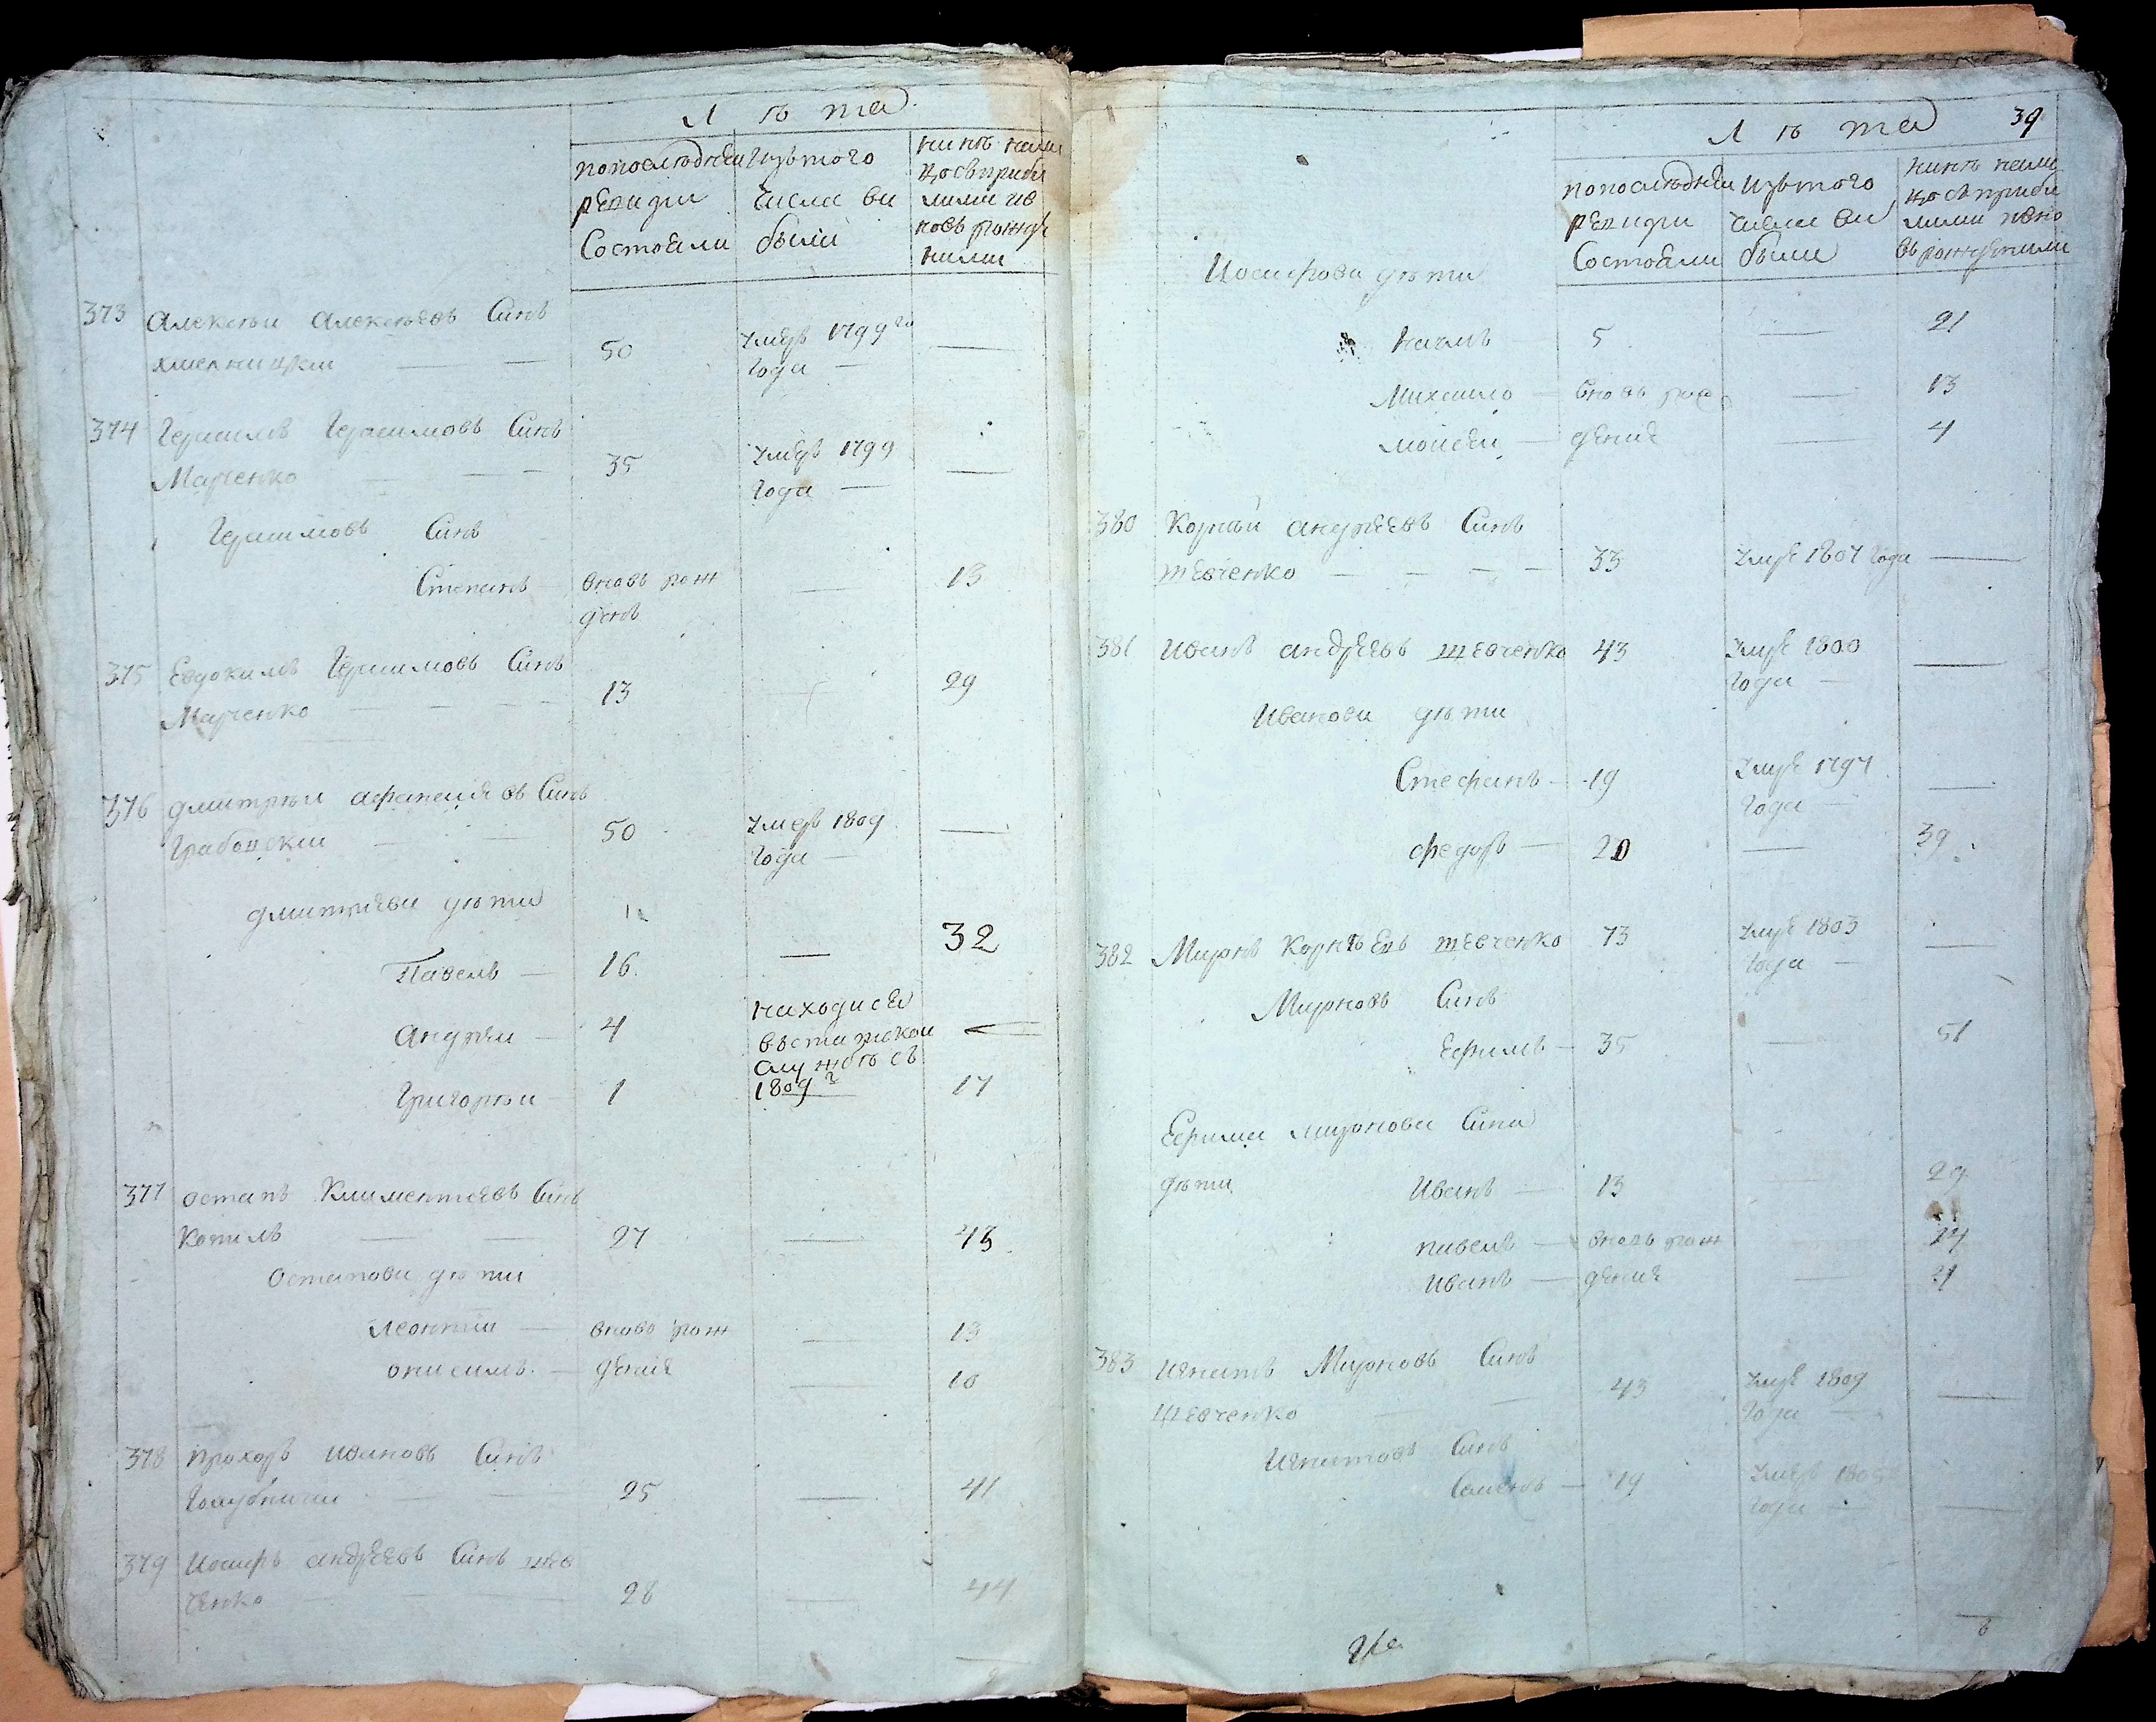 Лѣта
попоследнеи
ревизии
Состояли
изътого
числа вы
были
нинѣ нали
цо съприбы
лими ıно
вь рожде
ними
373 Алексѣи Алексѣевъ Синъ
хмелницкии 50 Умеръ 1799го
года
374 Герасимъ Герасимовъ Синъ
Марченко 35 Умеръ 1799
года
Герасимовъ Синъ
Степанъ вновь рож
денъ 13
375 Евдокимъ Герасимовъ Синъ
Марченко 13 29
376 дмитрѣи афанасиевъ Синъ
Грабовскии 50 Умеръ 1809
года
дмитриеви дѣти
Павелъ 16 32
Андрѣи 4 находися
Григорѣи 1 17
службѣ съ
1809г
377 остапъ Климентиевъ Синъ
Котилъ 27 43
Остапови дѣти
Леонтии вновь рож 13
онисимъ дение 10
378 прохоръ ивановъ Синъ
Голубничи 25 41
379 Иосифъ андреевъ Синъ шев
ченко 28 44
39
Лѣта
попоследнеи
ревизи
Состояли
изътого
числа вы
были
нинѣ нали
цо съприбы
лими
вь рожденими
Иосифови дѣти
5 21
Михаило вновь рож 13
Моисеи дение 4
380 Корнѣи андреевъ Синъ
шевченко 33 Умре 1807 года
381 Иванъ андреевъ шевченко 43 Умре 1800
года
Иванови дѣти
Стефанъ 19 Умре 1797
года
федоръ 20 39
382 Миронъ Корнѣевъ шевченко 73 Умре 1803
года
Мироновъ Синъ
Ефимъ 35 51
Ефима миронова Сина
дѣти Иванъ 13 29
павелъ вновь рож
Иванъ дение
383 игнатъ Мироновъ Синъ
шевченко 43 Умре 1809
года
Игнатовъ Синъ
Семенъ 19 Умеръ
года
6